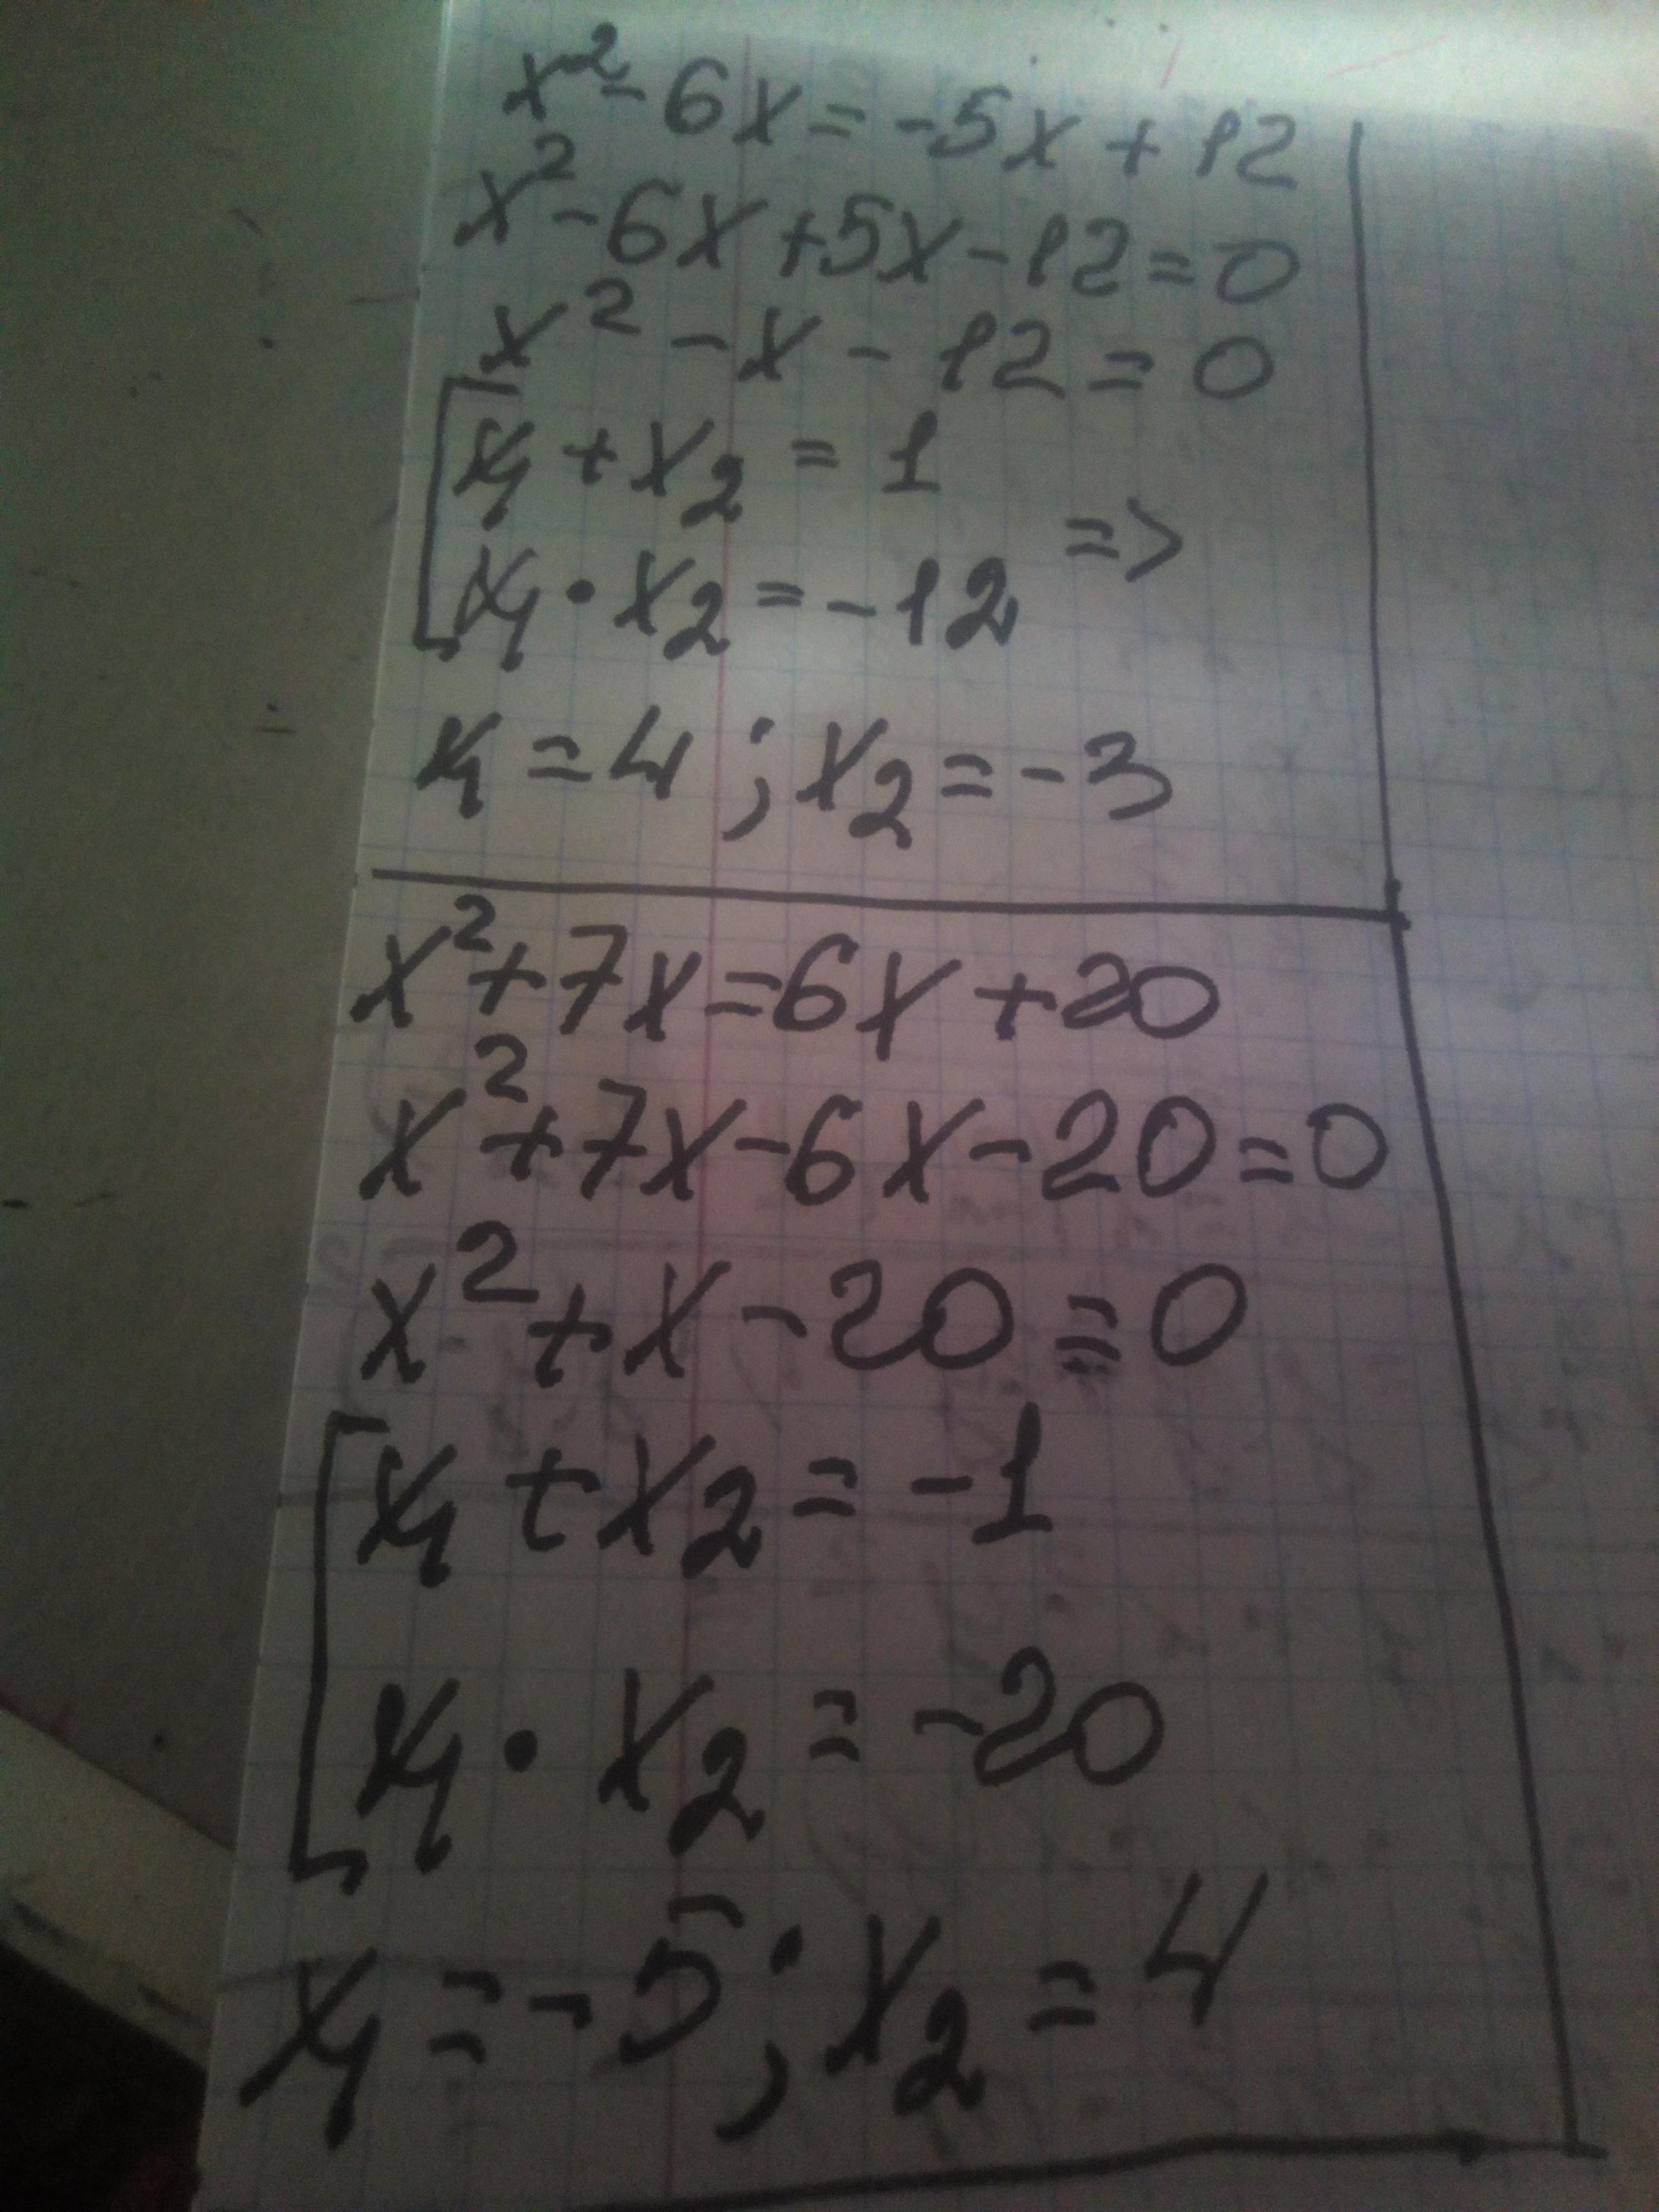 x² - 6x = -5x + 12
x² - 6x + 5x - 12 = 0
x² - x - 12 = 0
[x₁ + x₂ = 1
=>
[x₁ · x₂ = -12
x₁ = 4 ; x₂ = -3
x² + 7x = 6x + 20
x² + 7x - 6x - 20 = 0
x² + x - 20 = 0
[x₁ + x₂ = -1
[x₁ · x₂ = -20
x₁ = -5 ; x₂ = 4